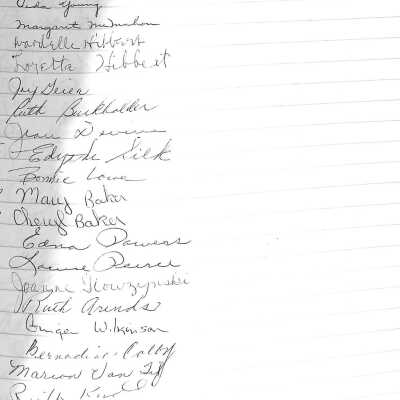 Veda Young
Margaret McMahon
Wardelle Hibbert
Loretta Hibbert
Joy Geier
Ruth Burkholder
Jean
Edythe Silk
Bonnie Lowe
Mary Baker
Cheryl Baker
Edna Powers
Pierce
Joanne
Ruth Arends
Ginger Wilkinson
Bernadine Colby
Marion Van
Ruth